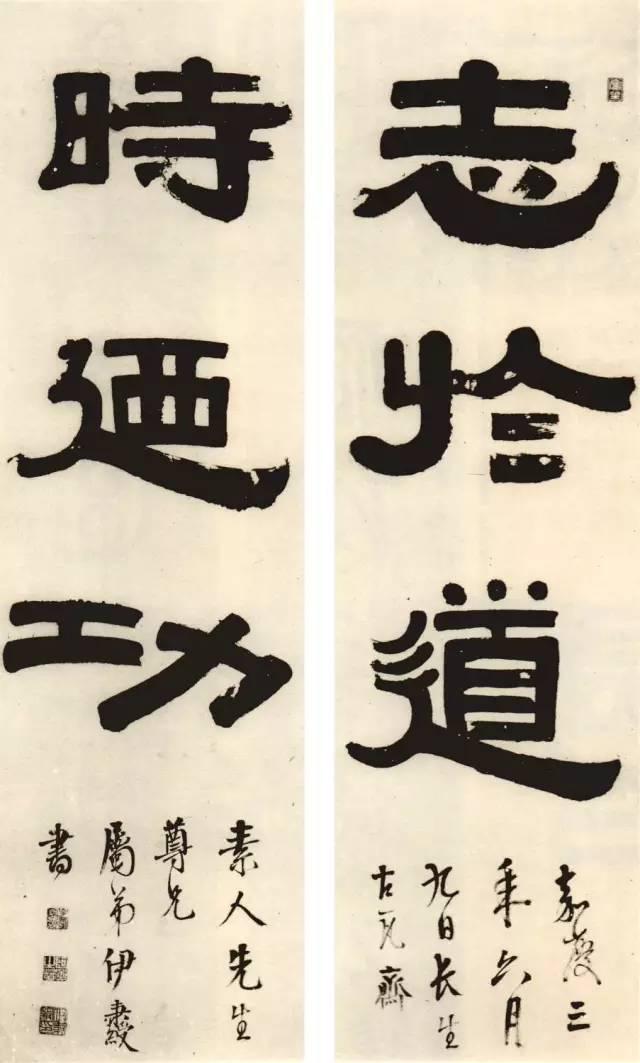 志於道
嘉慶三
年六月
九日長生
古瓦齋
時廼功
素人先生
尊兄
屬弟伊秉綬
書